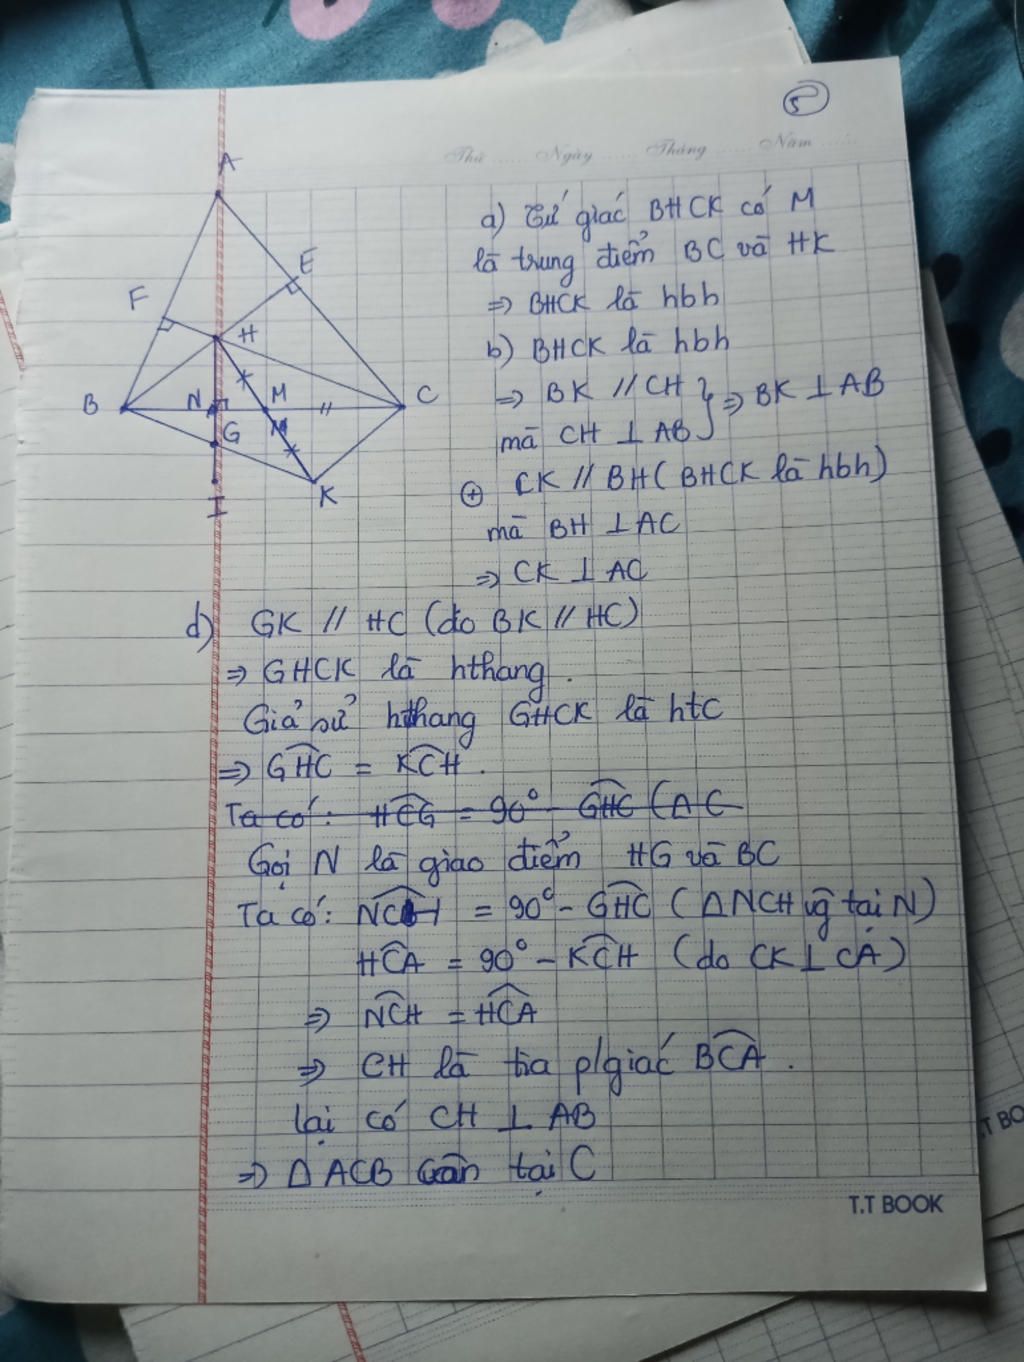 5
Thứ ...... Ngày ...... Tháng ...... Năm ......
A
E
F
H
B
N
M
C
G
M
K
I
a) Tứ giác BHCK có M
là trung điểm BC và HK
=> BHCK là hbh
b) BHCK là hbh
=> BK // CH } => BK ⊥ AB
mà CH ⊥ AB
⊕ CK // BH (BHCK là hbh)
mà BH ⊥ AC
=> CK ⊥ AC
d) GK // HC (do BK // HC)
=> GHCK là hthang.
Giả sử hthang GHCK là htc
=> GHC = KCH.
Ta có: HCG = 90° - GHC (AC
Gọi N là giao điểm HG và BC
Ta có: NCH = 90° - GHC (Δ NCH vg tại N)
HCA = 90° - KCH (do CK ⊥ CA)
=> NCH = HCA
=> CH là tia p/giác BCA.
lại có CH ⊥ AB
=> Δ ACB cân tại C
T.T BOOK
T.T BO